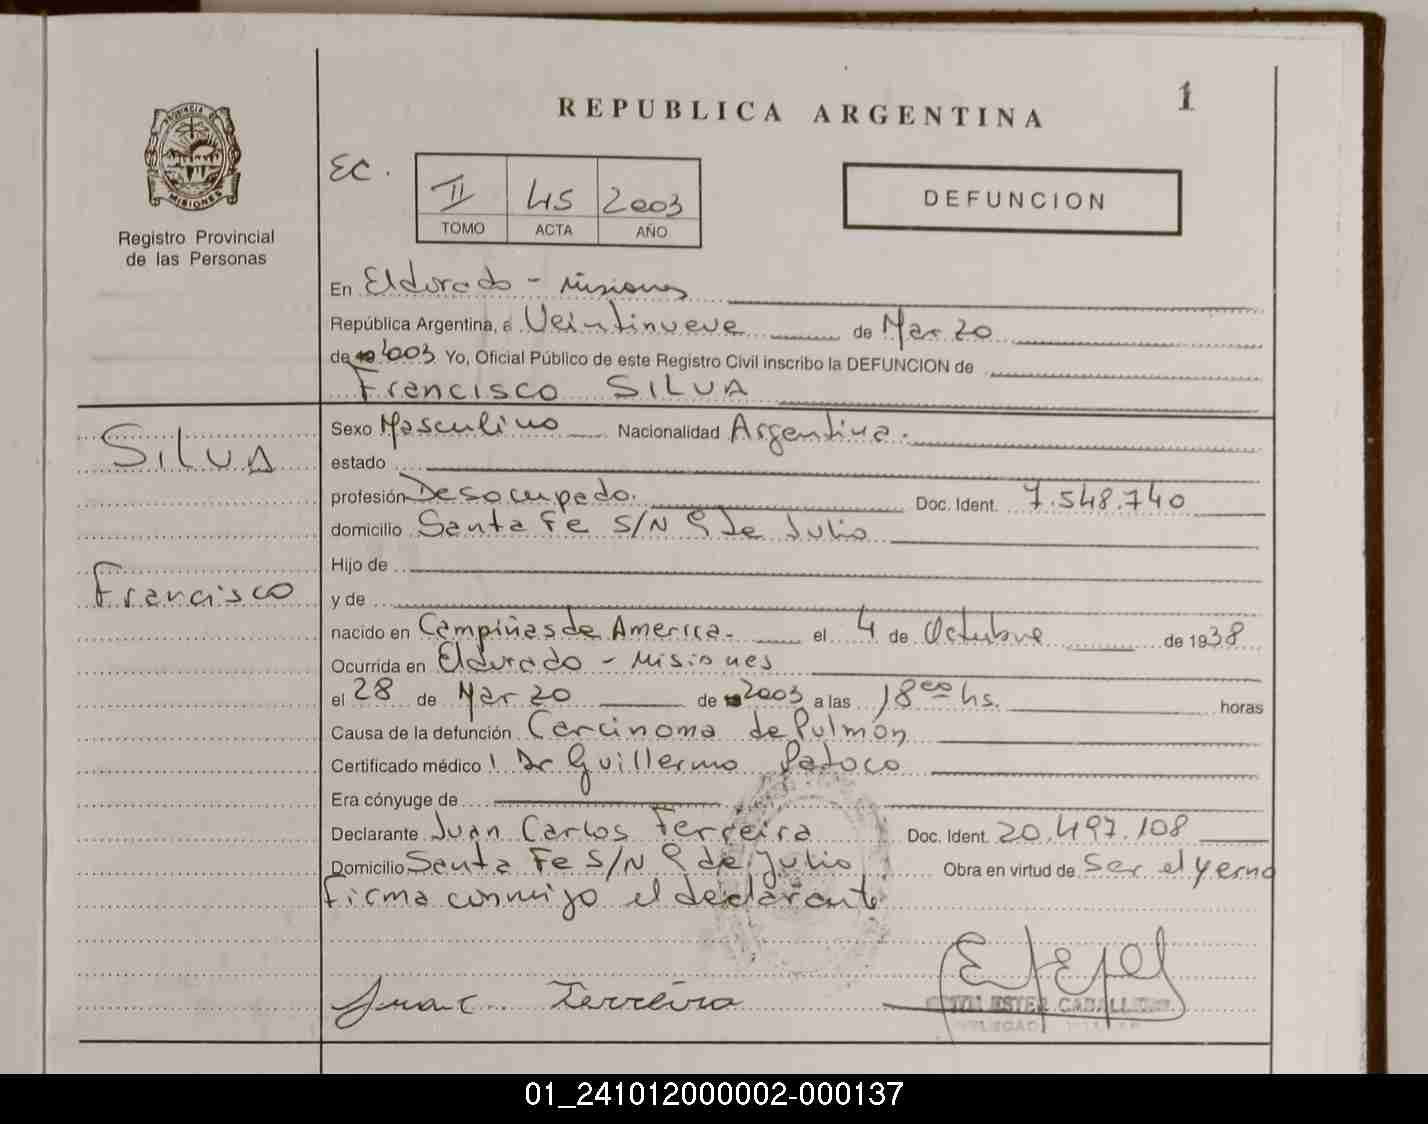 1
REPUBLICA ARGENTINA
PROVINCIA DE
MISIONES
Registro Provincial
de las Personas
EC.
II 45 2003
TOMO ACTA AÑO
DEFUNCION
En Eldorado - Misiones
República Argentina, a Veintinueve de Marzo
de 2003 Yo, Oficial Público de este Registro Civil inscribo la DEFUNCION de
Francisco SILVA
SILVA
Francisco
Sexo Masculino Nacionalidad Argentina.
estado
profesión Desocupado. Doc. Ident. 7.548.740
domicilio Santa Fe S/N 9 de Julio
Hijo de
y de
nacido en Campiñas de America. el 4 de Octubre de 1938
Ocurrida en Eldorado - Misiones
el 28 de Marzo de 2003 a las 18 00 hs. horas
Causa de la defunción Carcinoma de Pulmón
Certificado médico Dr Guillermo
Era cónyuge de
Declarante Juan Carlos Ferreira Doc. Ident. 20.497.108
Domicilio Santa Fe S/N 9 de Julio Obra en virtud de Ser el yerno
Firma conmigo el declarante
Juan C. Ferreira
ESTER CABALLERO
01_241012000002-000137